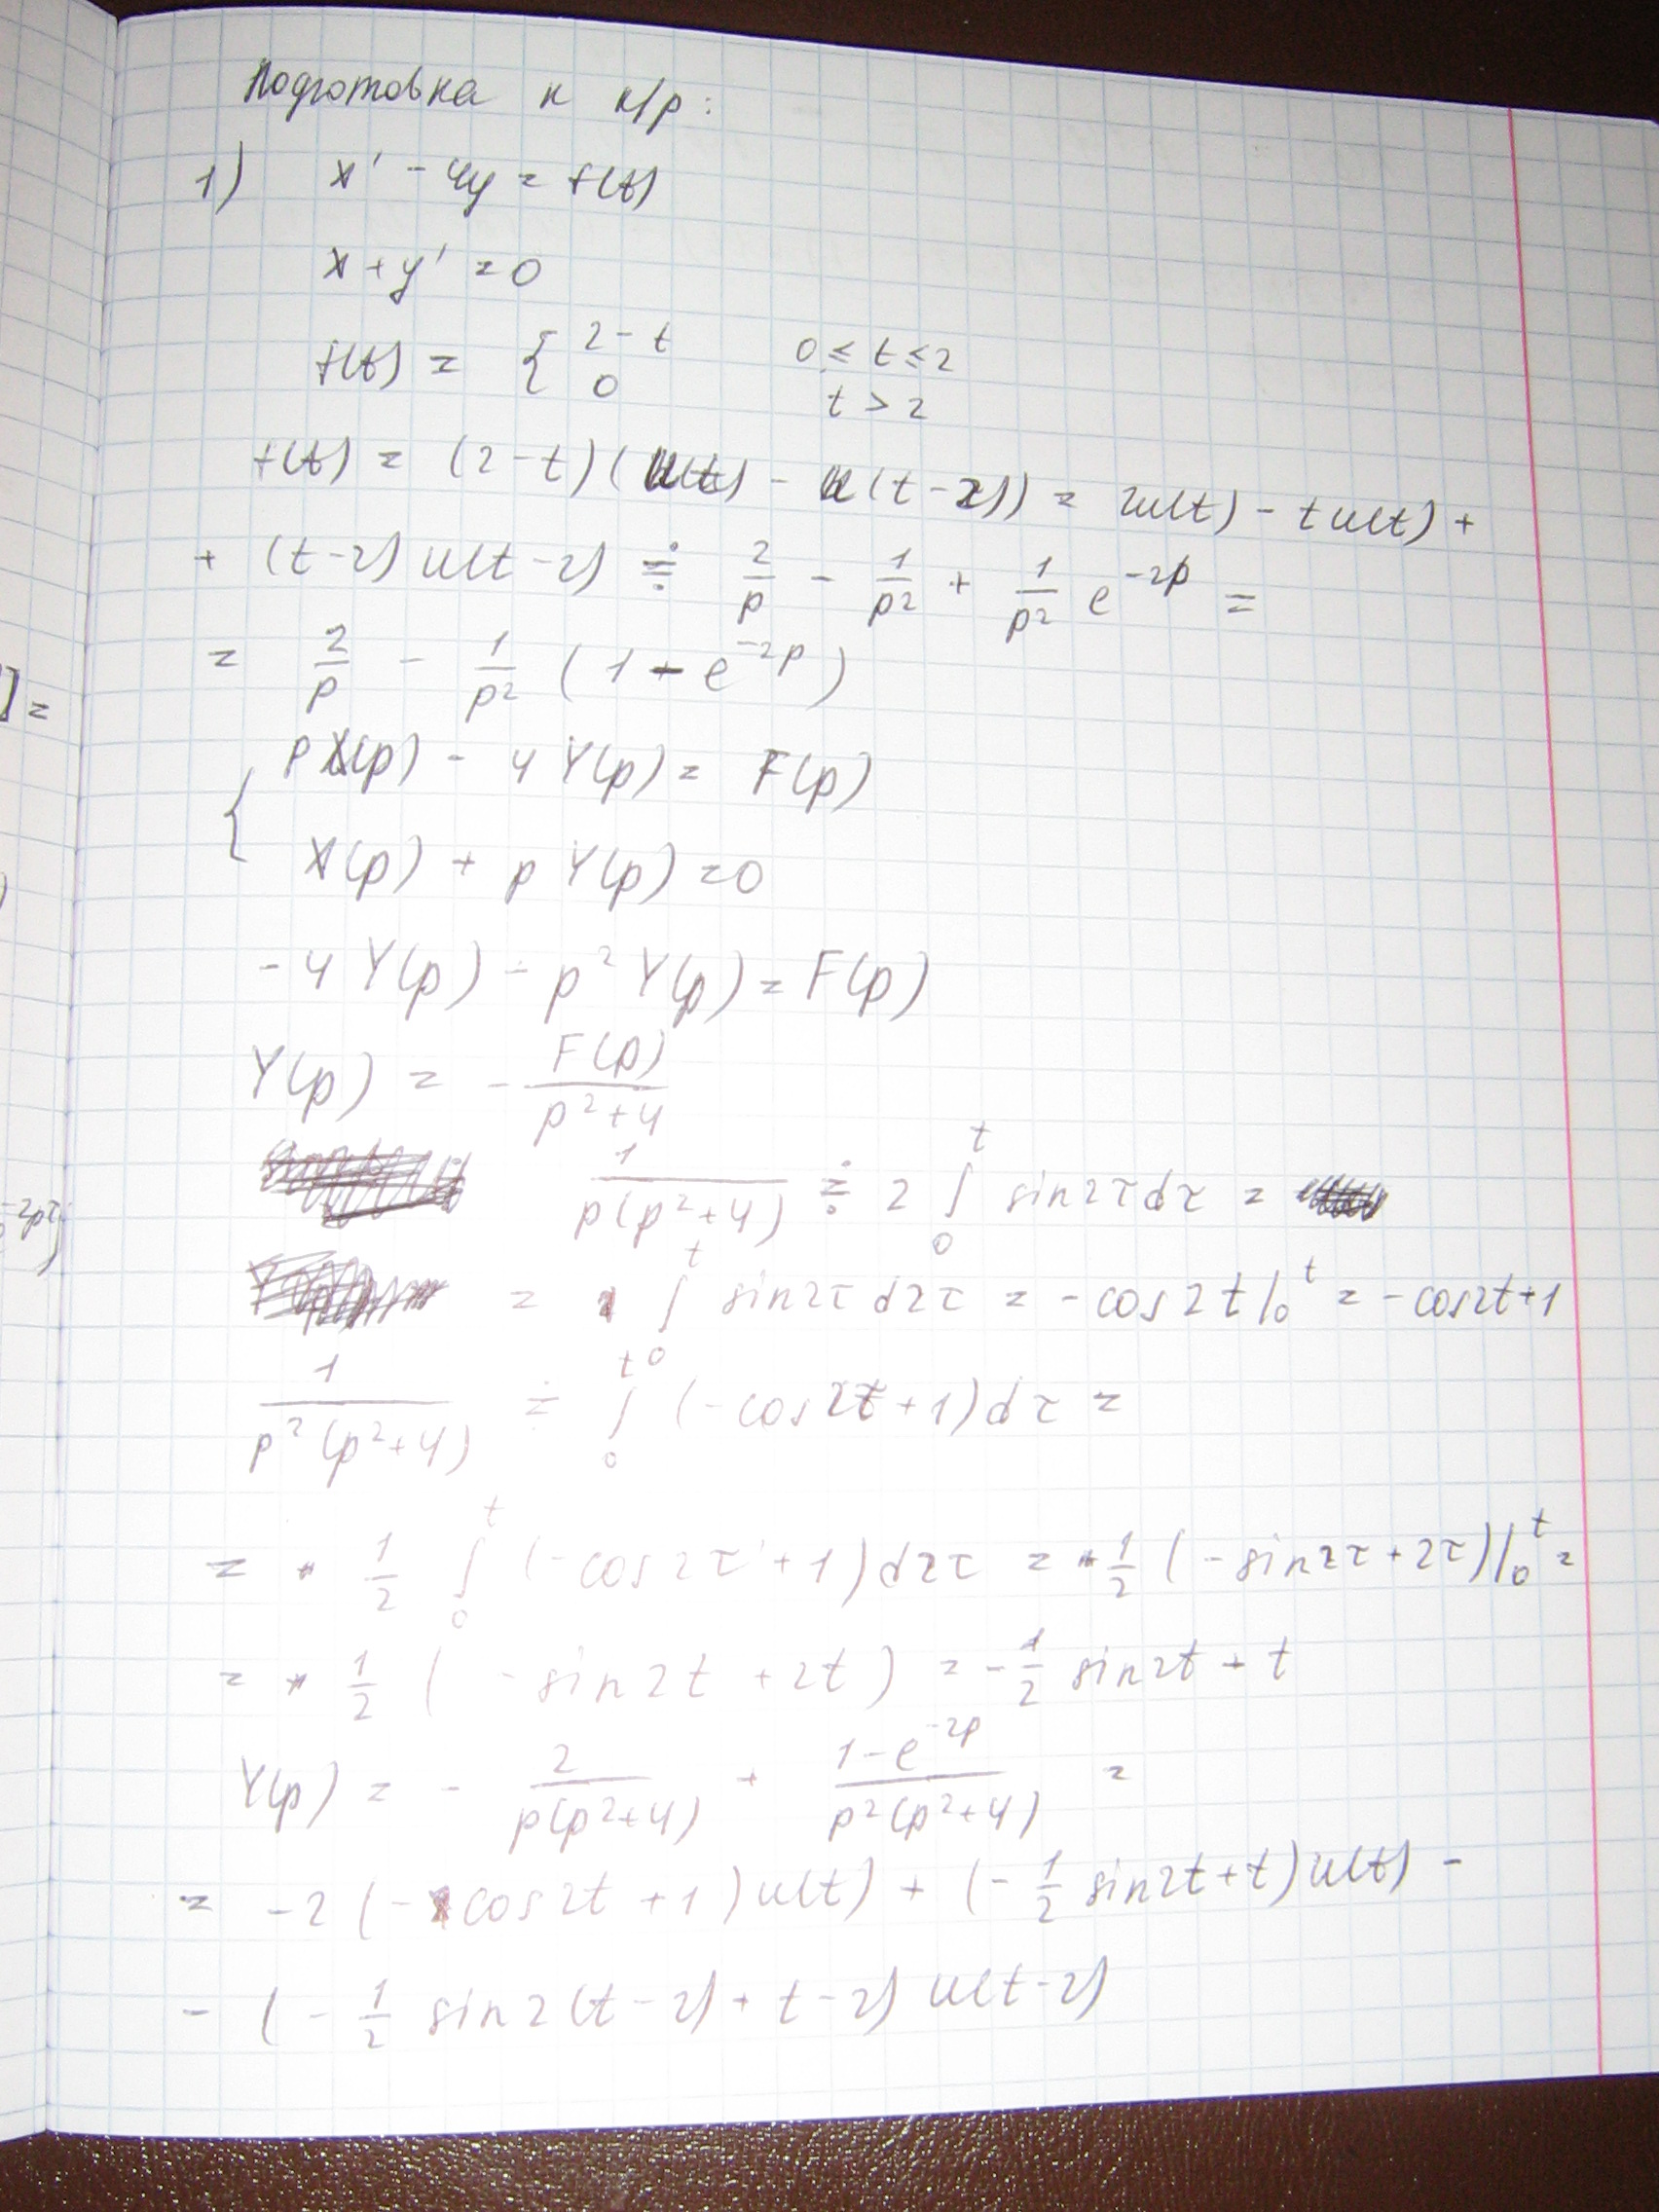 Подготовка к к/р:
1) x' - 4y = f(t)
x + y' = 0
f(t) = { 2 - t 0 ≤ t ≤ 2
0 t > 2
f(t) = (2 - t)(u(t) - u(t - 2)) = 2u(t) - tu(t) +
+ (t - 2) u(t - 2) ≑ 2/p - 1/p² + 1/p² e^{-2p} =
= 2/p - 1/p² (1 - e^{-2p})
{ pX(p) - 4Y(p) = F(p)
X(p) + pY(p) = 0
-4Y(p) - p²Y(p) = F(p)
Y(p) = - F(p)/(p²+4)
1/(p(p²+4)) ≑ 2 ∫₀ᵗ sin2τdτ =
= ∫₀ᵗ sin2τ d2τ = -cos2t |₀ᵗ = -cos2t+1
1/(p²(p²+4)) ≑ ∫₀ᵗ (-cos2τ+1)dτ =
= 1/2 ∫₀ᵗ (-cos2τ+1)d2τ = 1/2 (-sin2τ+2τ)|₀ᵗ =
= 1/2 (-sin2t + 2t) = -1/2 sin2t + t
Y(p) = - 2/(p(p²+4)) + (1-e^{-2p})/(p²(p²+4)) =
= -2(-cos2t+1)u(t) + (-1/2 sin2t+t)u(t) -
- (-1/2 sin2(t-2)+t-2) u(t-2)
]=